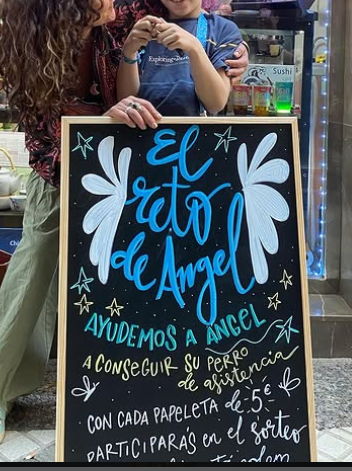 Sushi
El
reto
de Angel
AYUDEMOS A ANGEL
A CONSEGUIR SU PERRO
de asistencia
CON CADA PAPELETA de 5€
PARTICIPARÁS en el sorteo